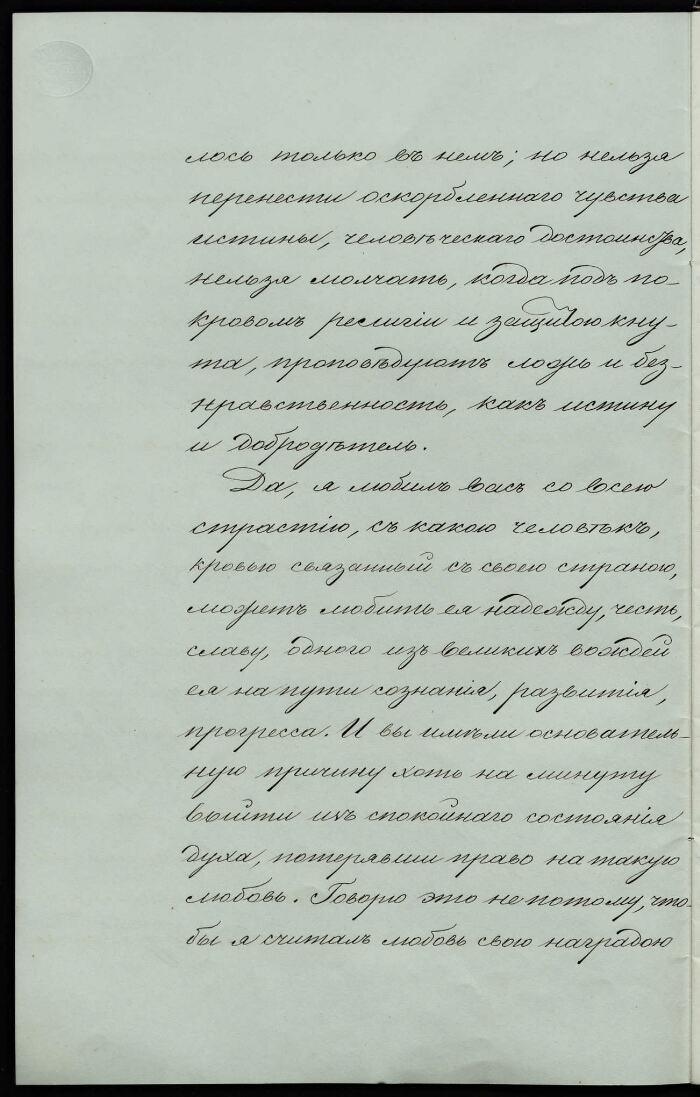 лось только въ немъ; но нельзя
перенести оскорбленнаго чувства
истины, человѣческаго достоинства,
нельзя молчать, когда подъ по-
кровомъ религіи и защитою кну-
та, проповѣдуютъ ложь и без-
нравственность, какъ истину
и добродѣтель.
Да, я любилъ васъ со всею
страстію, съ какою человѣкъ,
кровью связанный съ своею страною,
можетъ любить ея надежду, честь,
славу, одного изъ великихъ вождей
ея на пути сознанія, развитія,
прогресса. И вы имѣли основатель-
ную причину хоть на минуту
выйти изъ спокойнаго состоянія
духа, потерявши право на такую
любовь. Говорю это не потому, что-
бы я считалъ любовь свою наградою